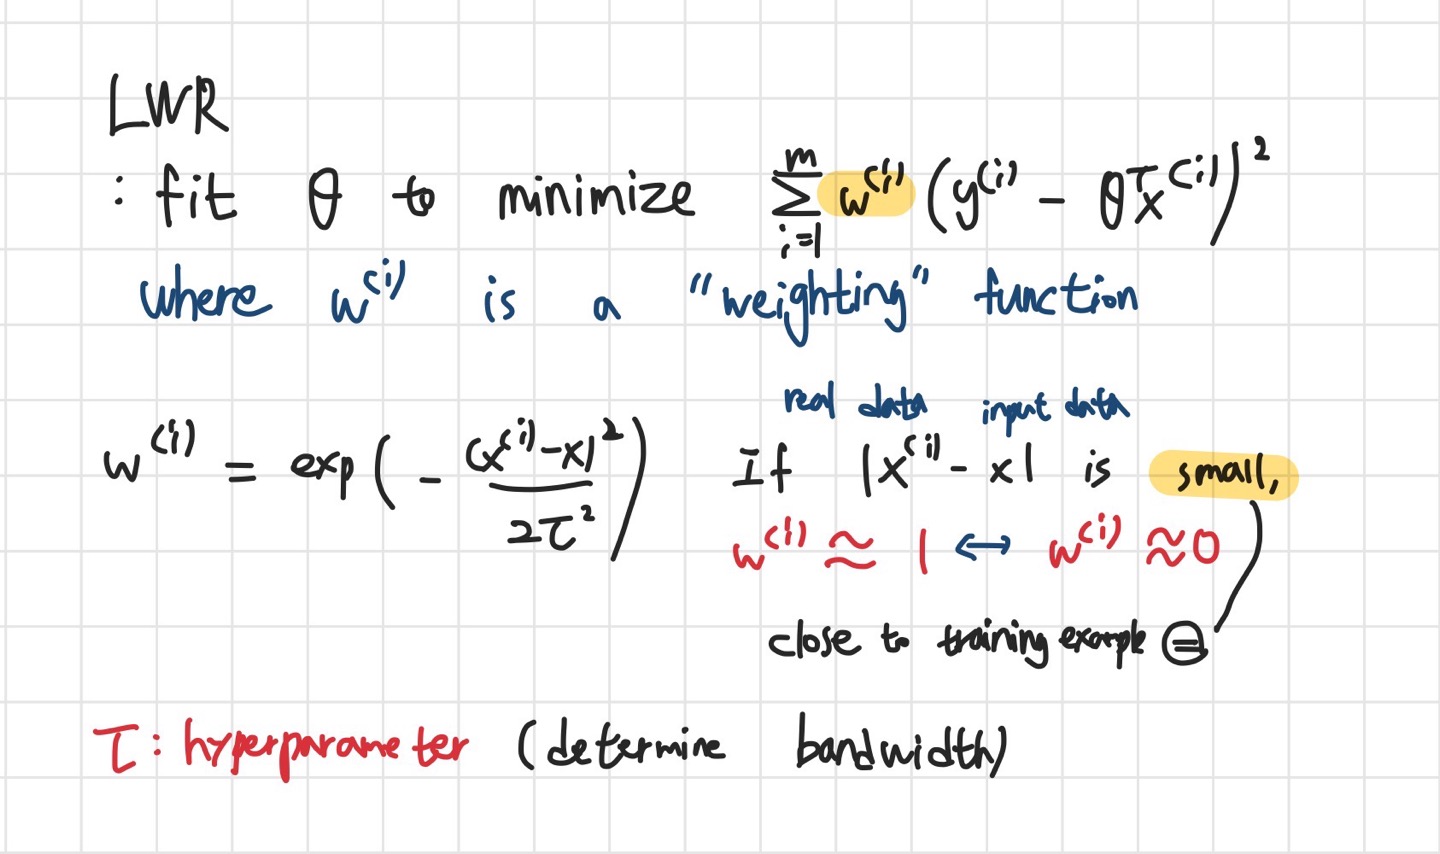 LWR
: fit θ to minimize Σ_{i=1}^{m} w^{(i)} (y^{(i)} - θ^T x^{(i)})^2
where w^{(i)} is a "weighting" function
real data input data
w^{(i)} = exp(- (x^{(i)}-x)^2 / 2τ^2) If |x^{(i)} - x| is small,
w^{(i)} ≈ 1 ↔ w^{(i)} ≈ 0
close to training example =
τ: hyperparameter (determine bandwidth)